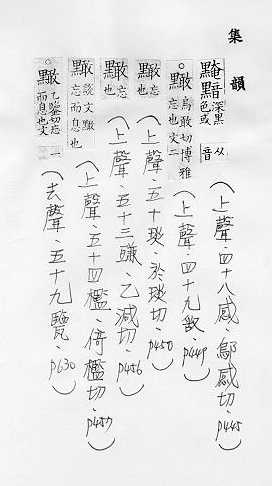 集韻
黤黯深黑色或从音
(上聲．四十八感．鄔感切．p445)
。黭烏敢切博雅忘也文二
(上聲．四十九敢．p449)
忘也
(上聲．五十琰．於琰切．p450)
忘也
(上聲．五十三豏．乙減切．p456)
說文忘而息也
(上聲．五十四檻．倚檻切．p457)
。乙鑒切忘而息也文二
(去聲．五十九鑒．p630)